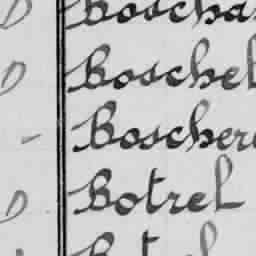 D Boscha
D Boschel
- Boscher
D Botrel